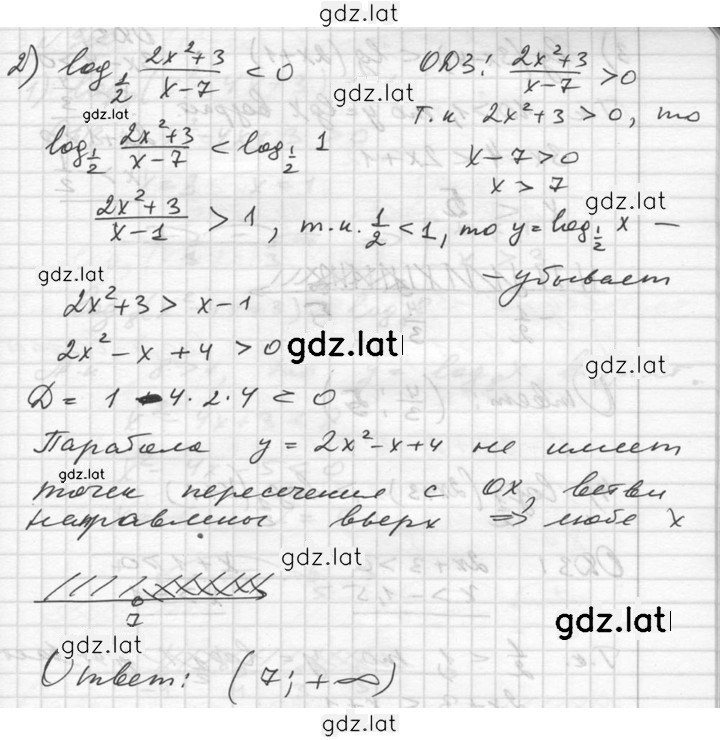 gdz.lat
2) log_{1/2} (2x²+3)/(x-7) < 0 ОДЗ: (2x²+3)/(x-7) > 0
gdz.lat
gdz.lat
т.к 2x²+3 > 0, то
log_{1/2} (2x²+3)/(x-7) < log_{1/2} 1 x-7 > 0
x > 7
gdz.lat
(2x²+3)/(x-1) > 1, т.к. 1/2 < 1, то y = log_{1/2} x –
gdz.lat
– убывает
2x²+3 > x-1
2x² - x + 4 > 0
gdz.lat
gdz.lat
Д = 1 - 4·2·4 < 0
Парабола y = 2x²-x+4 не имеет
gdz.lat
точек пересечения с OX, ветви
направлены вверх => любе x
gdz.lat
7
gdz.lat
gdz.lat
Ответ: (7; +∞)
gdz.lat